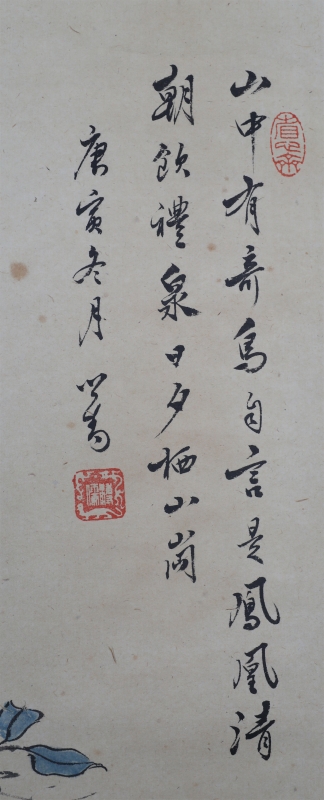 山中有奇鳥自言是鳳凰清
朝飲禮泉日夕栖山崗
庚寅冬月 心畬